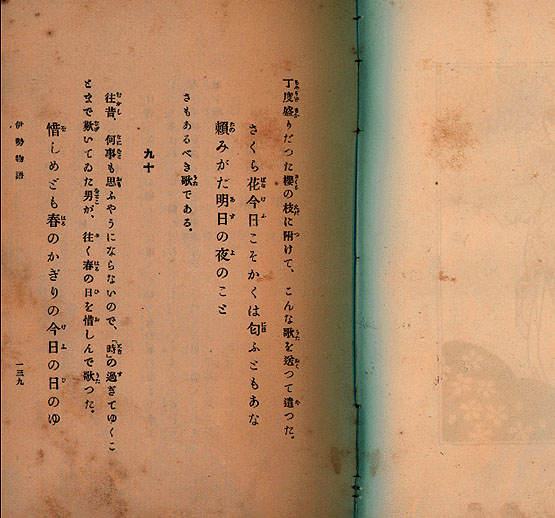 丁度盛りだつた櫻の枝に附けて、こんな歌を送つて遣つた。
さくら花今日こそかくは匂ふともあな
賴みがだ明日の夜のこと
さもあるべき歌である。
九十
往昔、何事も思ふやうにならないので、「時」の過ぎてゆくこ
とまで歎いてゐた男が、往く春の日を惜しんで歌つた。
惜しめども春のかぎりの今日の日のゆ
伊勢物語
一三九